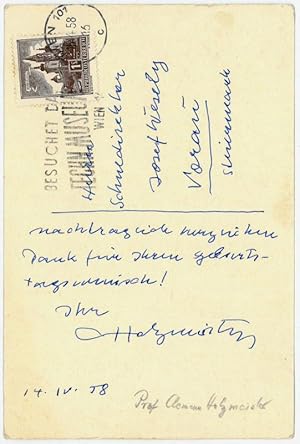 WIEN 101
58
BESUCHET D
TECHN. MUSEUM
WIEN
Herrn
Schuldirektor
Josef Wesely
Vorau
Steiermark
nachträglich herzlichen
Dank für Ihren Geburts-
tagswunsch!
Ihr
Holzmeister
14. IV. 58
Prof Clemens Holzmeister